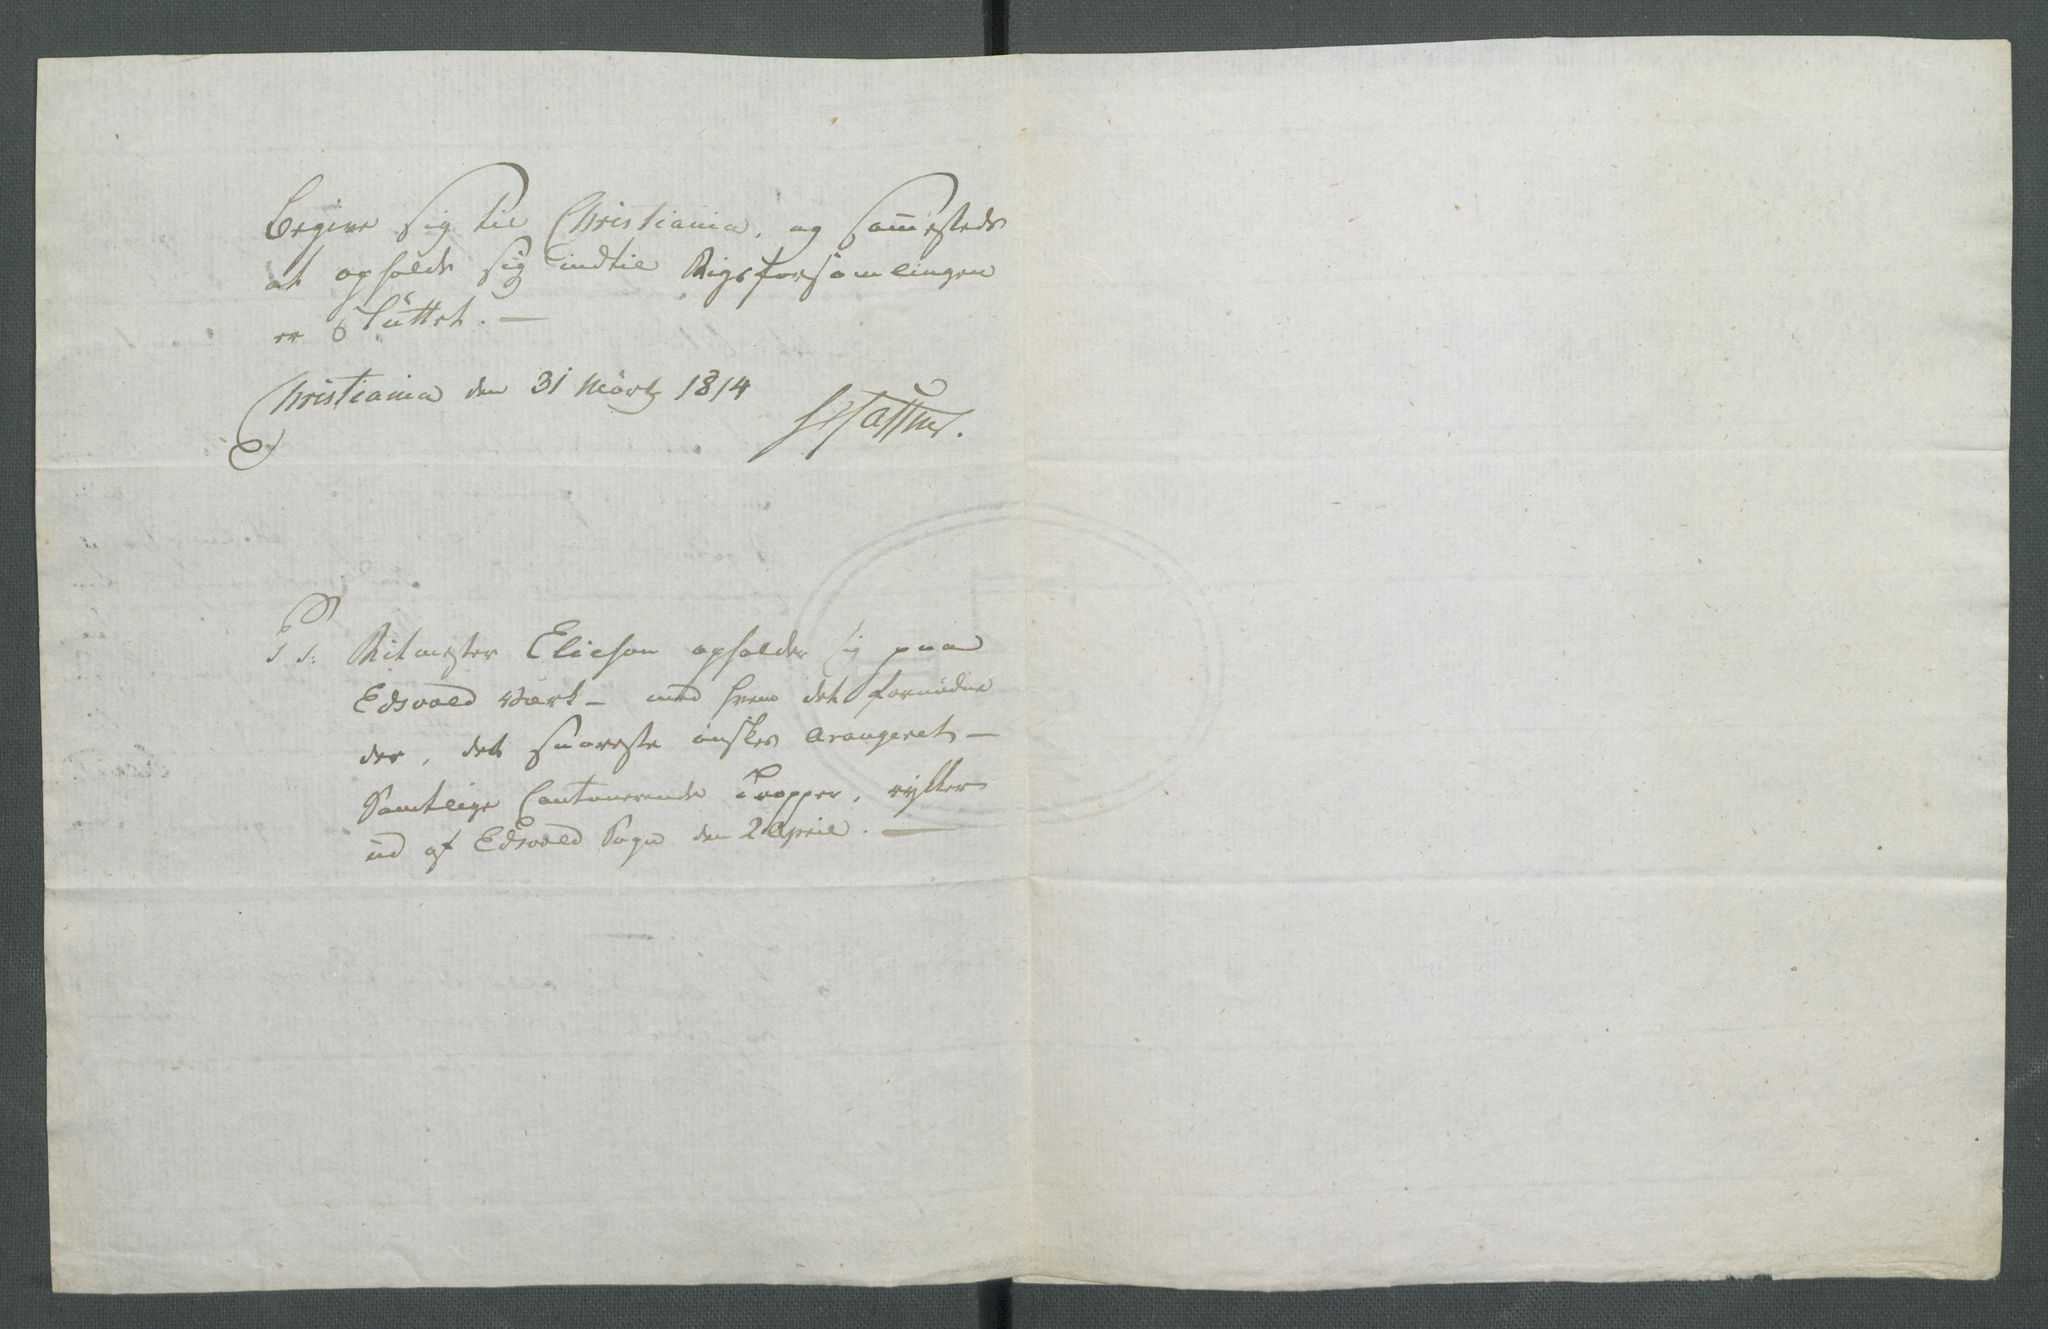 begive sig til Christiania, og sam̄esteds
at opholde sig indtil Rigsforsamlingen
er Sluttet. —
Christiania den 31 Martz 1814
PS: Ritmester Elieson opholder sig paa
Edsvold Værk — med hvem det fornødne
der, det snareste ønskes Arangeret —
Samtlige Cantonerende Tropper, rykker
ud af Edsvold Sogn den 2 April. —